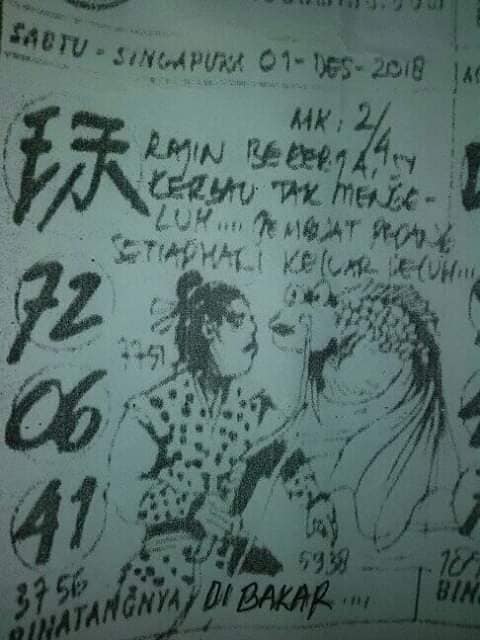 SABTU - SINGAPURA 01-DES-2018
MK: 2/4
RAJIN BEKERJA,
KERBAU TAK MENGE-
LUH.... PEMBUAT PEDANG
SETIAP HARI KELUAR PELUH...
72
7751
06
41
5938
3756
BINATANGNYA DI BAKAR....